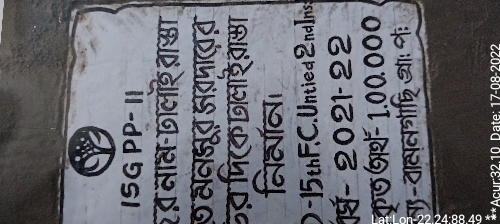 ISGPP-II
র নাম-ঢালাই রাস্তা
মনজুর সরদারের
দিকে ঢালাই রাস্তা
নির্মান।
-15th F.C. Untied 2nd Ins
বর্ষ- 2021-22
কৃত অর্থ- 1,00,000
- বামনগাছি গ্রা: প:
Lat:Lon-22.24:88.49 **
Date:17-08-2022